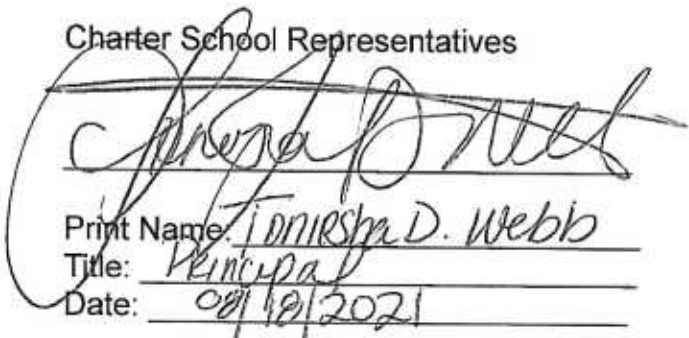 Charter School Representatives
Print Name: Toniesha D. Webb
Title: Principal
Date: 08/18/2021